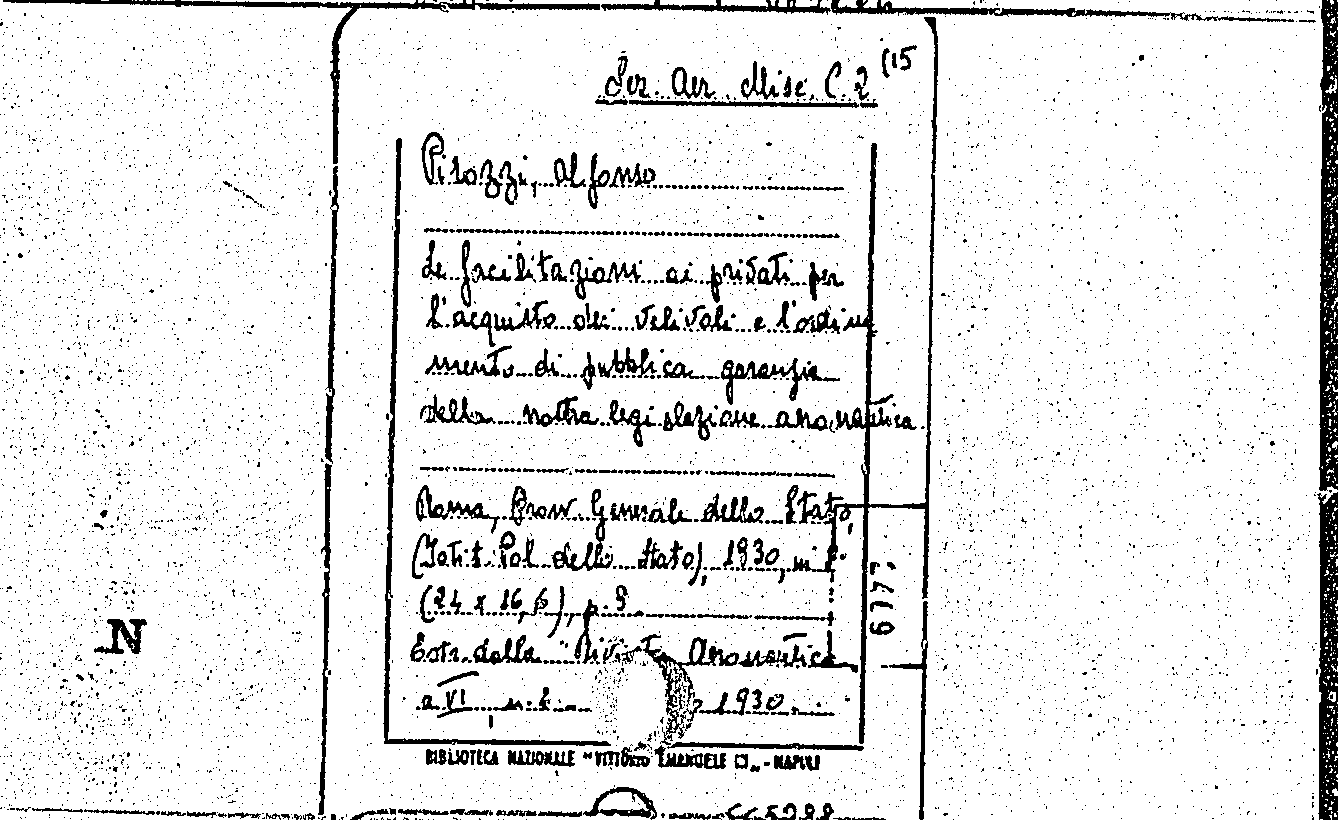 Ser. Aer. Misc. C. 2 (15
Pirozzi, Alfonso
Le facilitazioni ai privati per
l'acquisto dei velivoli e l'ordina
mento di pubblica garanzia
della nostra legislazione aronautica
Roma, Provv. Generale dello Stato,
(Istit. Pol. dello Stato), 1930, in 8.
(24 x 16,5), p. 9.
Estr. dalla Rivista Aronautica
a VI n. 2. 1930.
6777
N
BIBLIOTECA NAZIONALE "VITTORIO EMANUELE III„ - NAPOLI